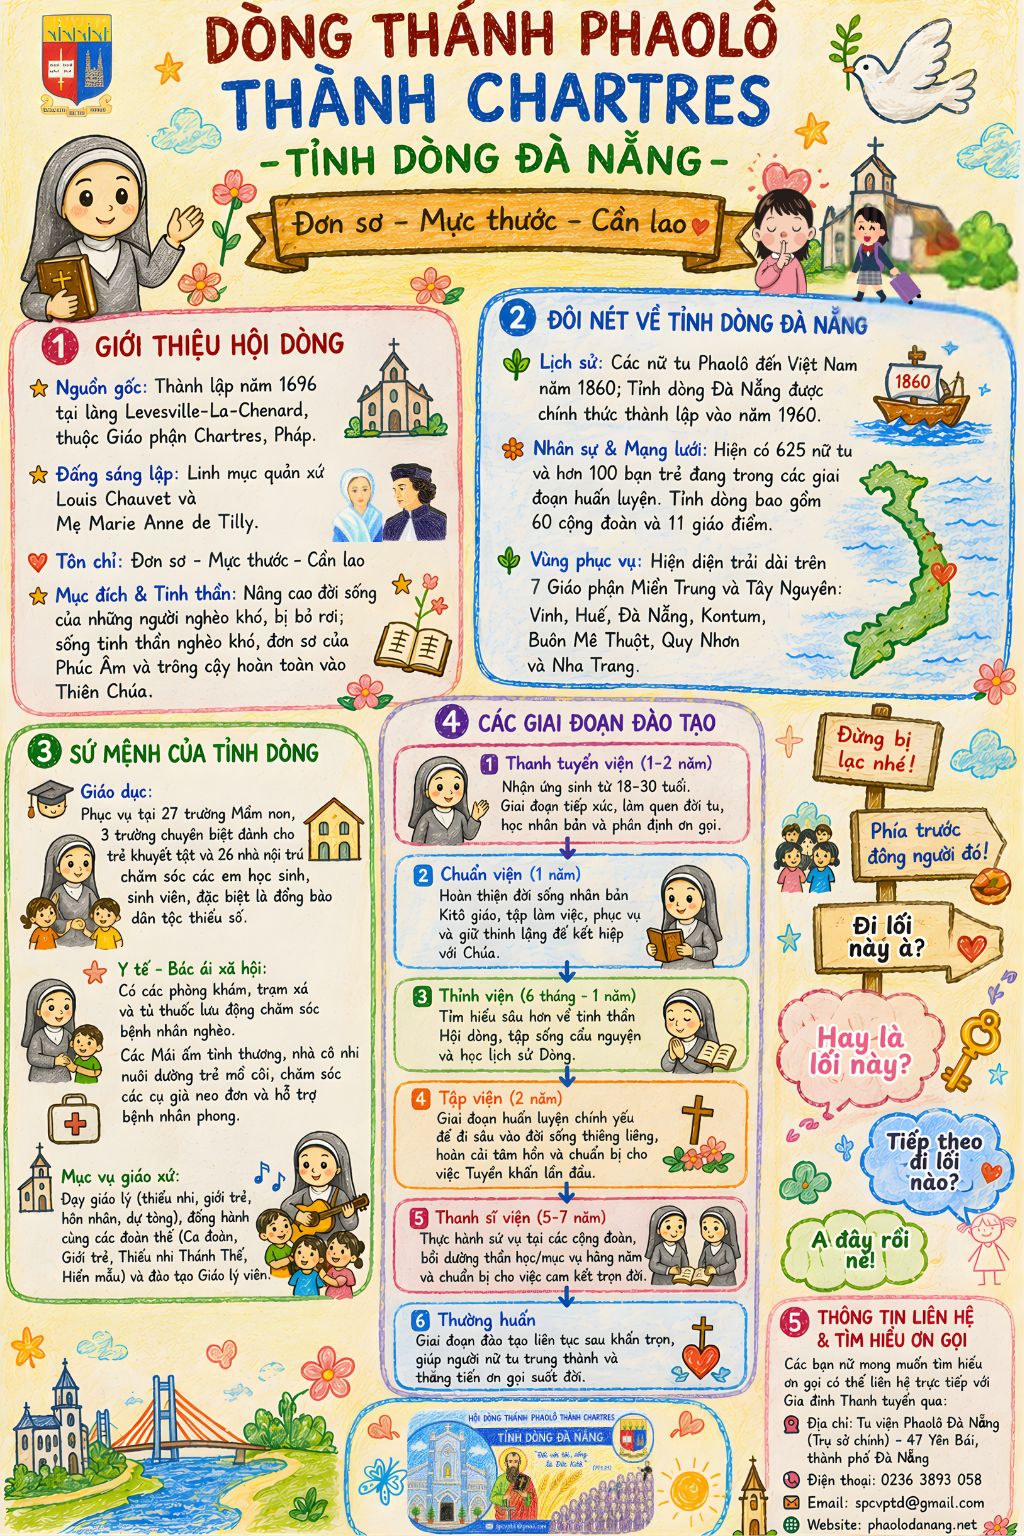 DÒNG THÁNH PHAOLÔ
THÀNH CHARTRES
- TỈNH DÒNG ĐÀ NẴNG -
Đơn sơ - Mực thước - Cần lao
1 GIỚI THIỆU HỘI DÒNG
Nguồn gốc: Thành lập năm 1696
tại làng Levesville-La-Chenard,
thuộc Giáo phận Chartres, Pháp.
Đấng sáng lập: Linh mục quản xứ
Louis Chauvet và
Mẹ Marie Anne de Tilly.
Tôn chỉ: Đơn sơ - Mực thước - Cần lao
Mục đích & Tinh thần: Nâng cao đời sống
của những người nghèo khó, bị bỏ rơi;
sống tinh thần nghèo khó, đơn sơ của
Phúc Âm và trông cậy hoàn toàn vào
Thiên Chúa.
2 ĐÔI NÉT VỀ TỈNH DÒNG ĐÀ NẴNG
Lịch sử: Các nữ tu Phaolô đến Việt Nam
năm 1860; Tỉnh dòng Đà Nẵng được
chính thức thành lập vào năm 1960.
1860
Nhân sự & Mạng lưới: Hiện có 625 nữ tu
và hơn 100 bạn trẻ đang trong các giai
đoạn huấn luyện. Tỉnh dòng bao gồm
60 cộng đoàn và 11 giáo điểm.
Vùng phục vụ: Hiện diện trải dài trên
7 Giáo phận Miền Trung và Tây Nguyên:
Vinh, Huế, Đà Nẵng, Kontum,
Buôn Mê Thuột, Quy Nhơn
và Nha Trang.
3 SỨ MỆNH CỦA TỈNH DÒNG
Giáo dục:
Phục vụ tại 27 trường Mầm non,
3 trường chuyên biệt dành cho
trẻ khuyết tật và 26 nhà nội trú
chăm sóc các em học sinh,
sinh viên, đặc biệt là đồng bào
dân tộc thiểu số.
Y tế - Bác ái xã hội:
Có các phòng khám, trạm xá
và tủ thuốc lưu động chăm sóc
bệnh nhân nghèo.
Các Mái ấm tình thương, nhà cô nhi
nuôi dưỡng trẻ mồ côi, chăm sóc
các cụ già neo đơn và hỗ trợ
bệnh nhân phong.
Mục vụ giáo xứ:
Dạy giáo lý (thiếu nhi, giới trẻ,
hôn nhân, dự tòng), đồng hành
cùng các đoàn thể (Ca đoàn,
Giới trẻ, Thiếu nhi Thánh Thể,
Hiền mẫu) và đào tạo Giáo lý viên.
4 CÁC GIAI ĐOẠN ĐÀO TẠO
1 Thanh tuyển viện (1-2 năm)
Nhận ứng sinh từ 18-30 tuổi.
Giai đoạn tiếp xúc, làm quen đời tu,
học nhân bản và phân định ơn gọi.
2 Chuẩn viện (1 năm)
Hoàn thiện đời sống nhân bản
Kitô giáo, tập làm việc, phục vụ
và giữ thinh lặng để kết hiệp
với Chúa.
3 Thỉnh viện (6 tháng - 1 năm)
Tìm hiểu sâu hơn về tinh thần
Hội dòng, tập sống cầu nguyện
và học lịch sử Dòng.
4 Tập viện (2 năm)
Giai đoạn huấn luyện chính yếu
để đi sâu vào đời sống thiêng liêng,
hoán cải tâm hồn và chuẩn bị cho
việc Tuyên khấn lần đầu.
5 Thanh sĩ viện (5-7 năm)
Thực hành sứ vụ tại các cộng đoàn,
bồi dưỡng thần học/mục vụ hằng năm
và chuẩn bị cho việc cam kết trọn đời.
6 Thường huấn
Giai đoạn đào tạo liên tục sau khấn trọn,
giúp người nữ tu trung thành và
thăng tiến ơn gọi suốt đời.
Đừng bị
lạc nhé!
Phía trước
đông người đó!
Đi lối
này à?
Hay là
lối này?
Tiếp theo
đi lối
nào?
A đây rồi
nè!
5 THÔNG TIN LIÊN HỆ
& TÌM HIỂU ƠN GỌI
Các bạn nữ mong muốn tìm hiểu
ơn gọi có thể liên hệ trực tiếp với
Gia đình Thanh tuyển qua:
Địa chỉ: Tu viện Phaolô Đà Nẵng
(Trụ sở chính) - 47 Yên Bái,
thành phố Đà Nẵng
Điện thoại: 0236 3893 058
Email: spcvptd@gmail.com
Website: phaolodanang.net
HỘI DÒNG THÁNH PHAOLÔ THÀNH CHARTRES
TỈNH DÒNG ĐÀ NẴNG
"Đối với tôi, sống
là Đức Kitô"